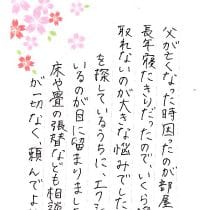 父が亡くなった時困ったのが部屋
長年寝たきりだったので、いくら
取れないのが大きな悩みでした
を探しているうちに、エクシ
いるのが目に留まりまし
床や畳の張替なども相談
が一切なく、頼んでよ